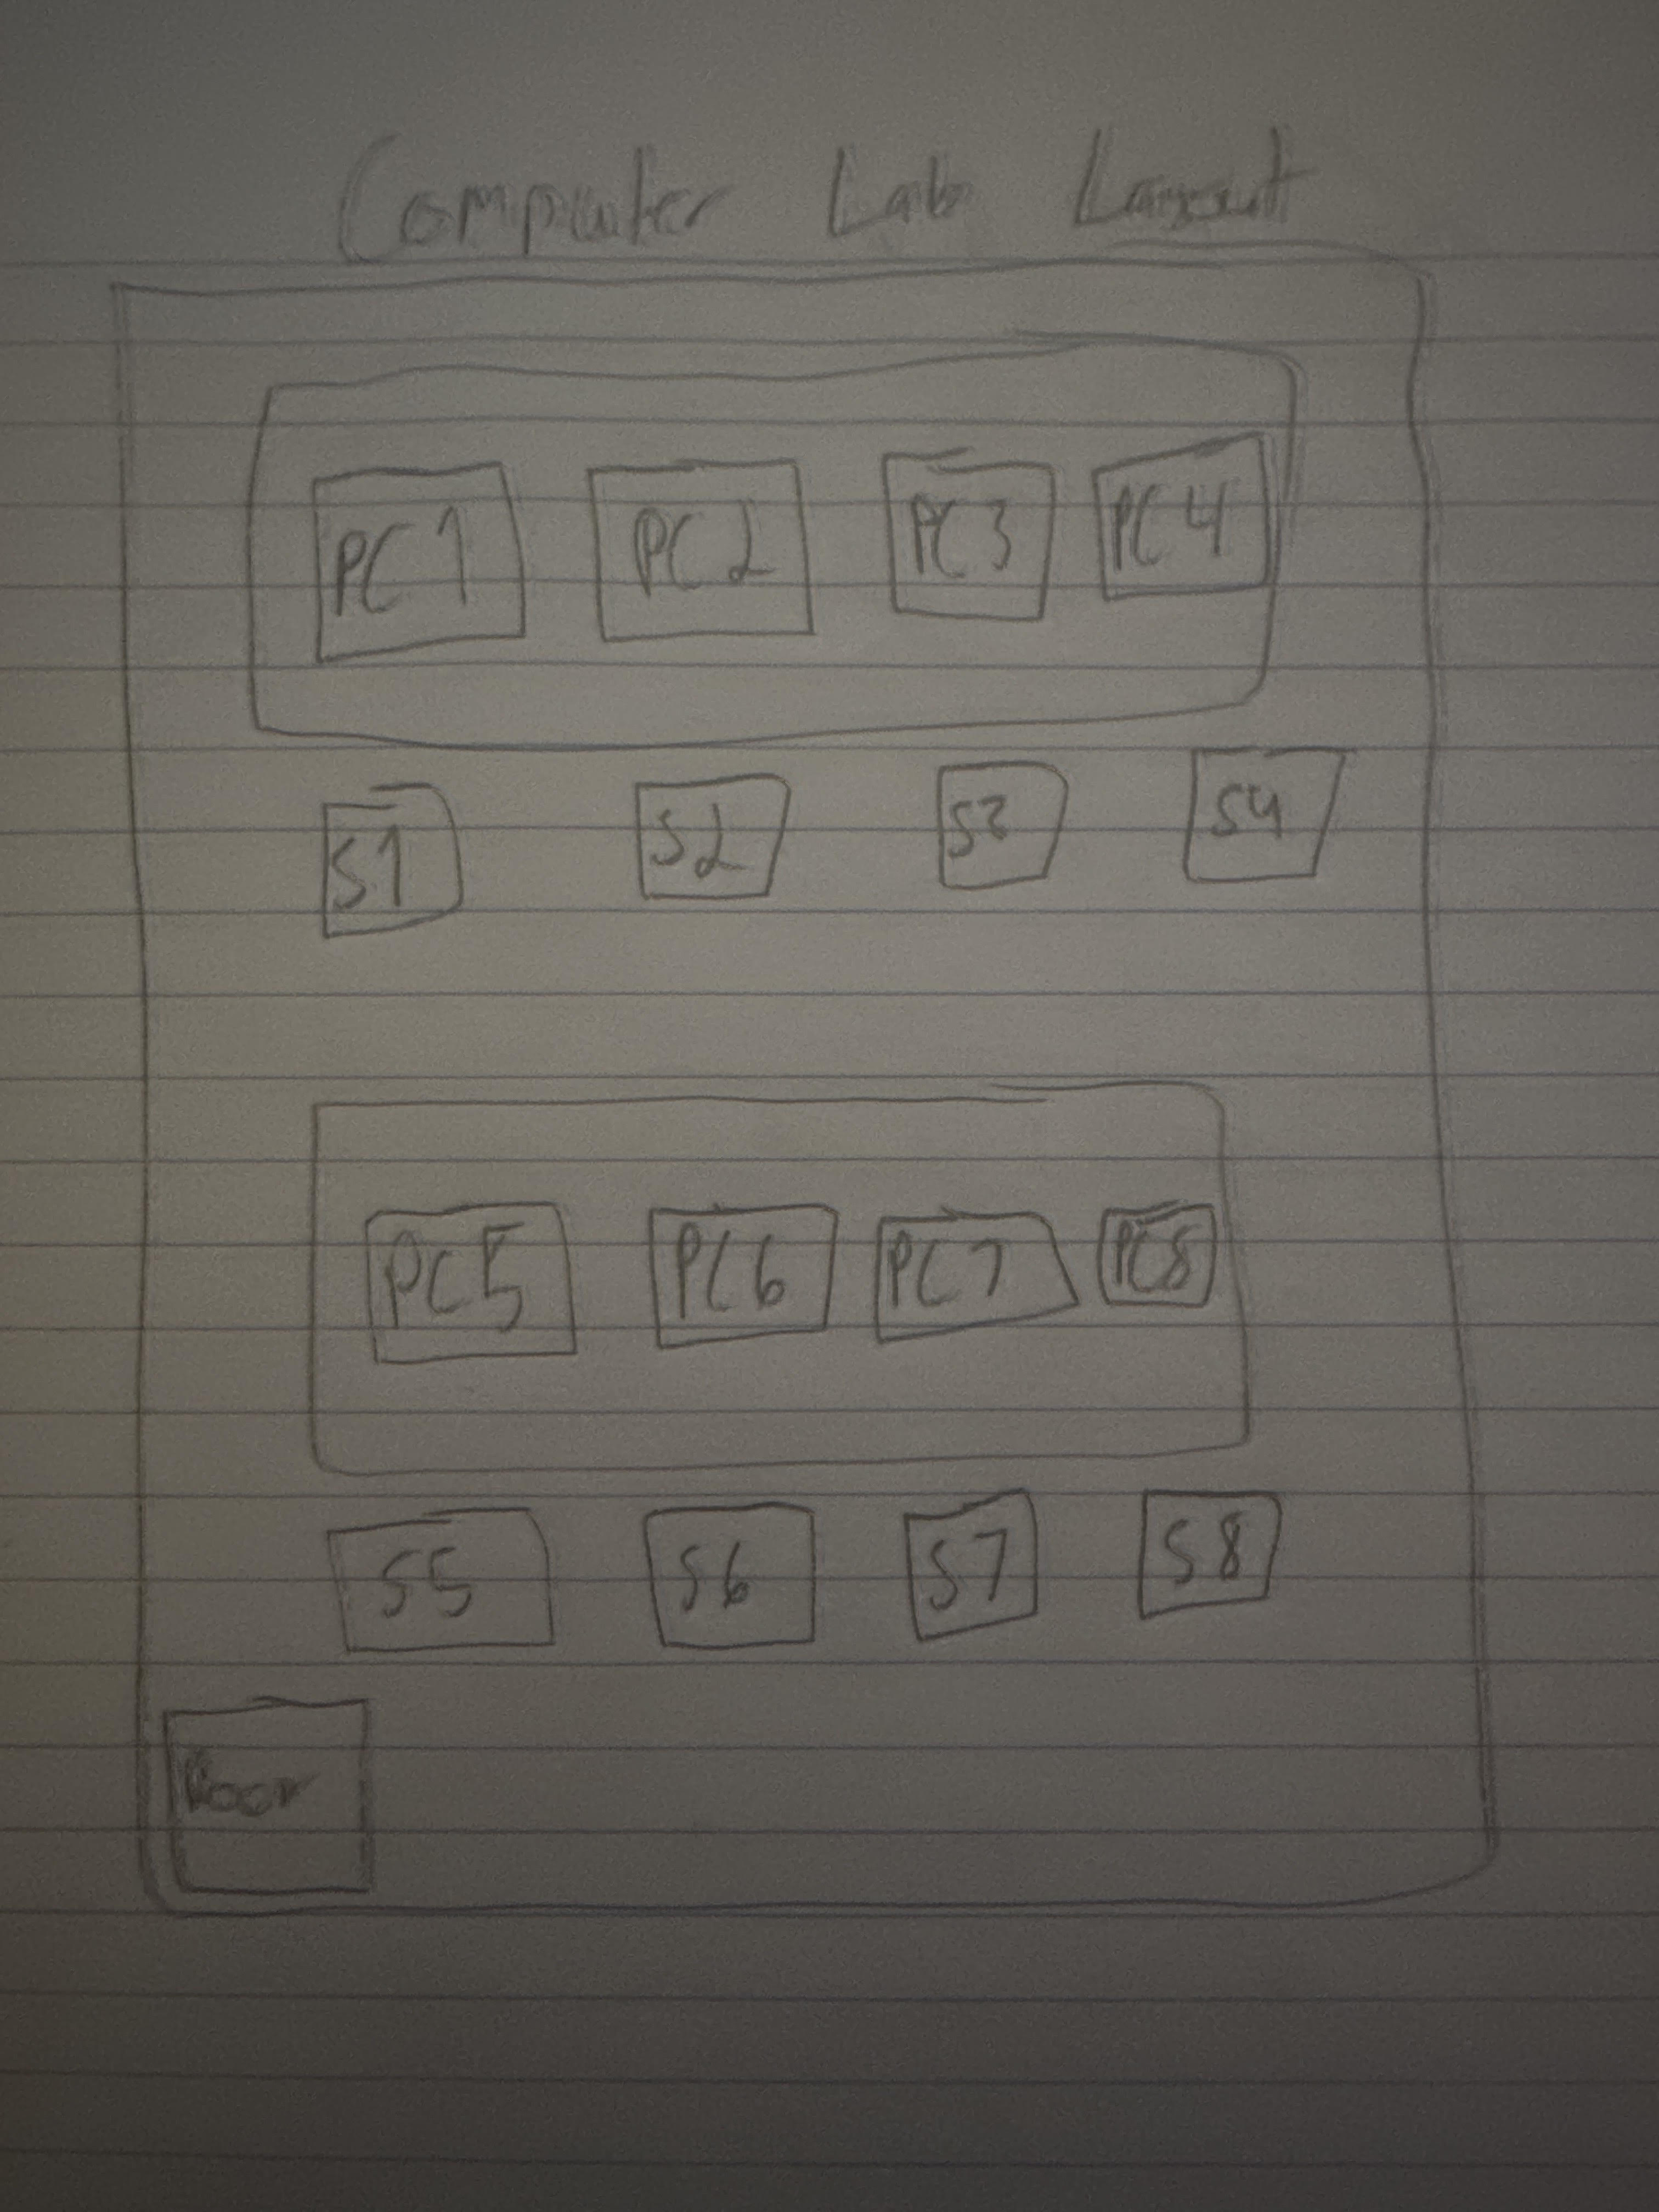 Computer Lab Layout
PC1 PC2 PC3 PC4
S1 S2 S3 S4
PC5 PC6 PC7 PC8
S5 S6 S7 S8
Door